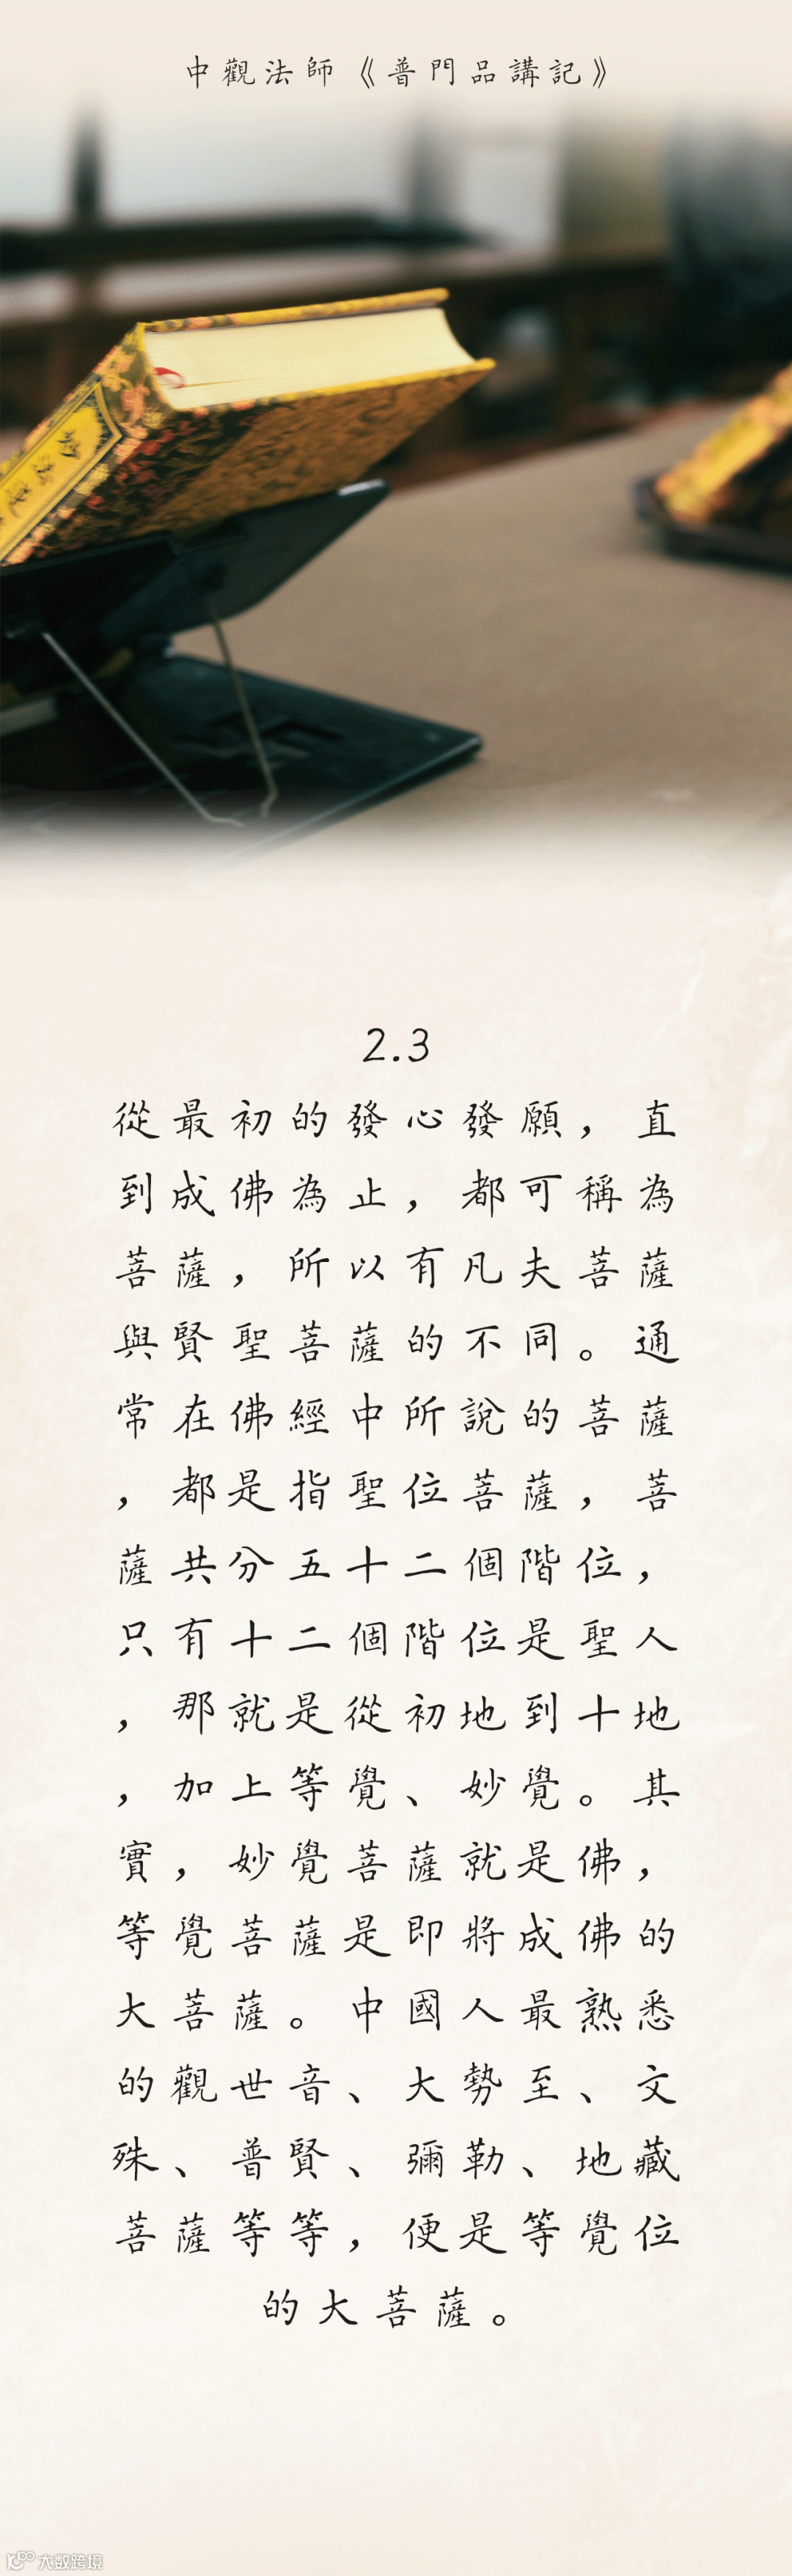 中觀法師《普門品講記》
2.3
從最初的發心發願，直
到成佛為止，都可稱為
菩薩，所以有凡夫菩薩
與賢聖菩薩的不同。通
常在佛經中所說的菩薩
，都是指聖位菩薩，菩
薩共分五十二個階位，
只有十二個階位是聖人
，那就是從初地到十地
，加上等覺、妙覺。其
實，妙覺菩薩就是佛，
等覺菩薩是即將成佛的
大菩薩。中國人最熟悉
的觀世音、大勢至、文
殊、普賢、彌勒、地藏
菩薩等等，便是等覺位
的大菩薩。
大数跨境